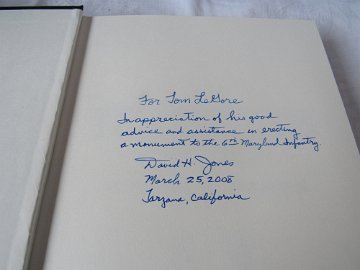 For Tom LeGore
In appreciation of his good
advice and assistance in erecting
a monument to the 6th Maryland Infantry.
David H. Jones
March 25, 2008
Tarzana, California